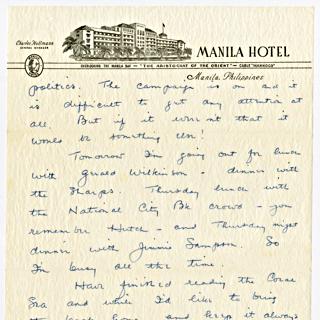 Charles Hollmann
GENERAL MANAGER
MANILA HOTEL
OVERLOOKING THE MANILA BAY — "THE ARISTOCRAT OF THE ORIENT" — CABLE "MANHOCO"
Manila, Philippines
politics. The campaign is on and it
is difficult to get any attention at
all. But if it weren't that it
would be something else!
Tomorrow I'm going out for lunch
with Gerald Wilkinson - dinner with
the Sharps. Thursday lunch with
the National City Bk crowd - you
remember Hutch - and Thursday night
dinner with Jimmie Sampson. So
I'm busy all the time.
Have finished reading the Coral
Sea and while I'd like to bring
the book home and keep it always